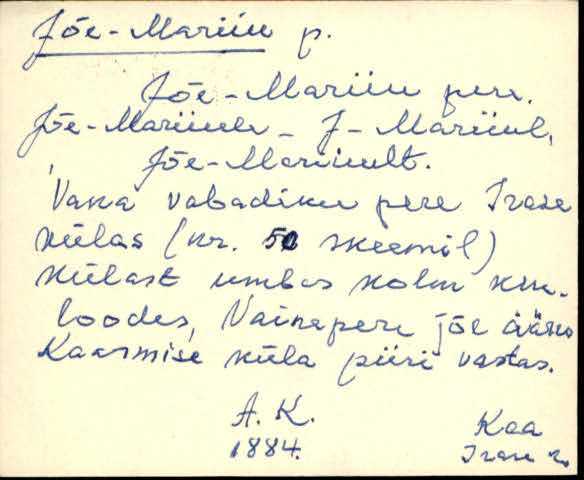 Jõe-Mariiu p.
Jõe-Mariiu pere.
Jõe-Mariiule - J-Mariiul,
Jõe-Mariiult.
Vana vabadiku pere Irase
külas (nr. 50 skeemil)
külast umbes kolm km.
loodes, Vainupere jõe ääres
Kaasmise küla piiri vastas.
A. K.
1884.
Kaa
Irase k.